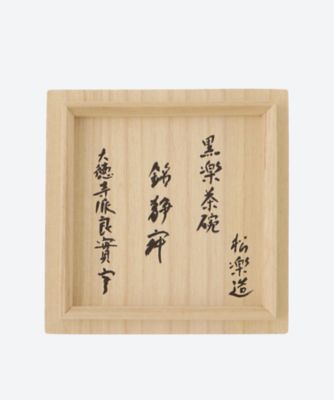 黒楽茶碗
松楽造
銘 静寂
大徳寺派良寛書